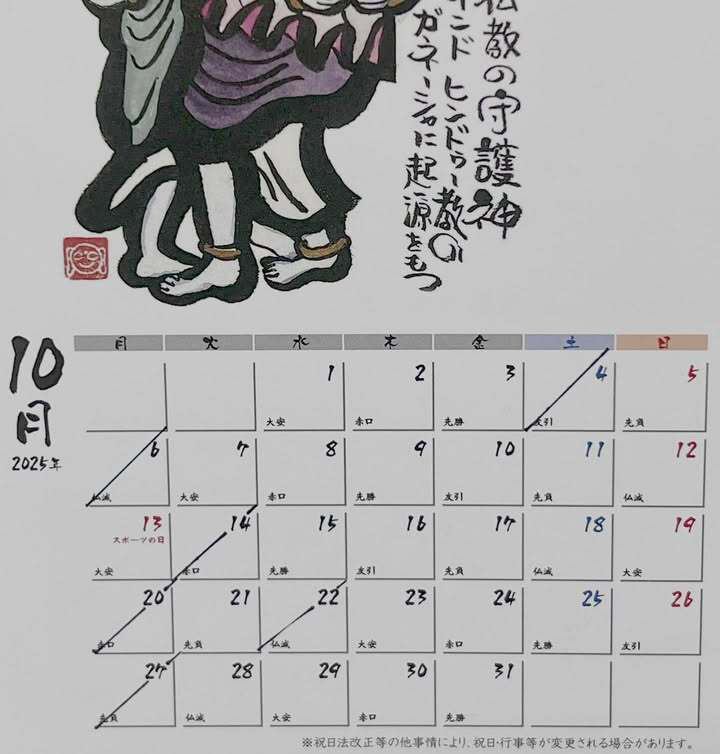 仏教の守護神
インド ヒンドゥー教の
ガネーシャに起源をもつ
10
月
2025年
月 火 水 木 金 土 日
1 2 3 4 5
大安 赤口 先勝 友引 先負
6 7 8 9 10 11 12
仏滅 大安 赤口 先勝 友引 先負 仏滅
13 14 15 16 17 18 19
スポーツの日
大安 赤口 先勝 友引 先負 仏滅 大安
20 21 22 23 24 25 26
赤口 先負 仏滅 大安 赤口 先勝 友引
27 28 29 30 31
先負 仏滅 大安 赤口 先勝
※祝日法改正等の他事情により、祝日・行事等が変更される場合があります。